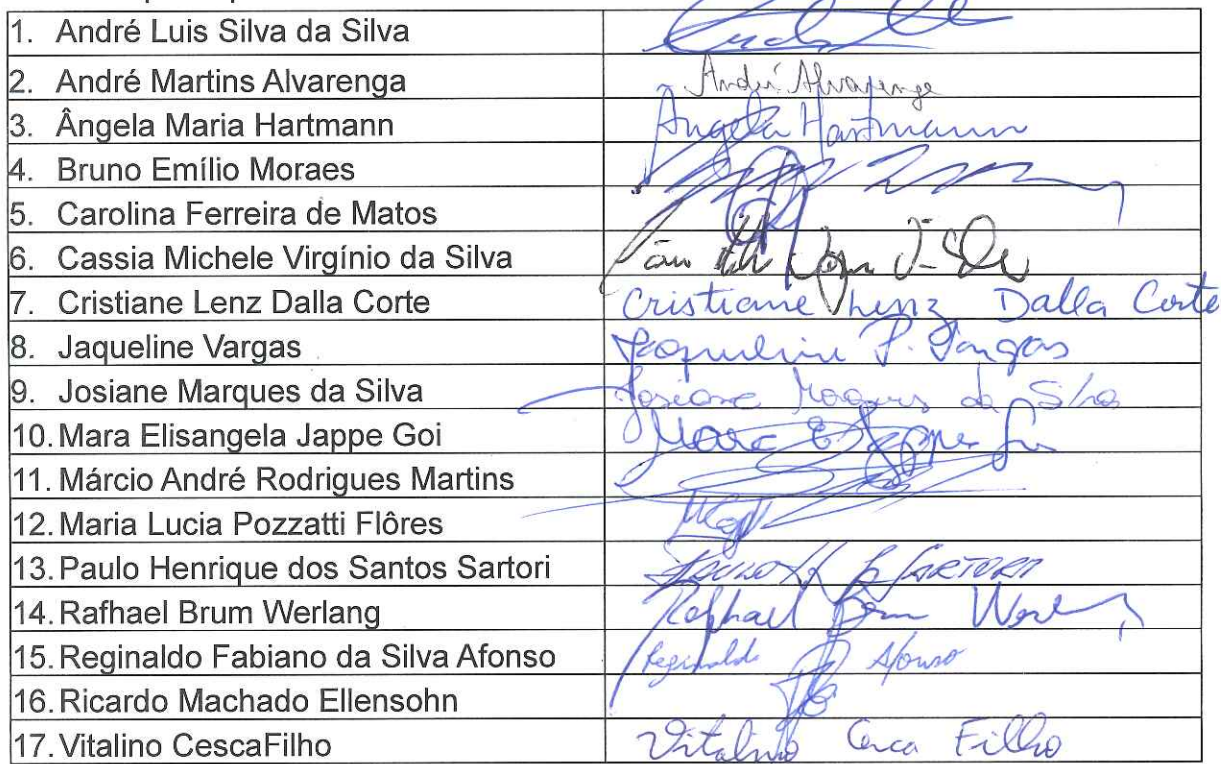 1. André Luis Silva da Silva
2. André Martins Alvarenga André Alvarenga
3. Ângela Maria Hartmann Angela Hartmann
4. Bruno Emílio Moraes
5. Carolina Ferreira de Matos
6. Cassia Michele Virgínio da Silva
7. Cristiane Lenz Dalla Corte Cristiane Lenz Dalla Corte
8. Jaqueline Vargas Jaqueline P. Vargas
9. Josiane Marques da Silva Josiane Marques da Silva
10. Mara Elisangela Jappe Goi Mara E. Jappe Goi
11. Márcio André Rodrigues Martins
12. Maria Lucia Pozzatti Flôres
13. Paulo Henrique dos Santos Sartori Paulo H. S. Sartori
14. Rafhael Brum Werlang Rafhael Brum
15. Reginaldo Fabiano da Silva Afonso Reginaldo Afonso
16. Ricardo Machado Ellensohn
17. Vitalino CescaFilho Vitalino Cesca Filho